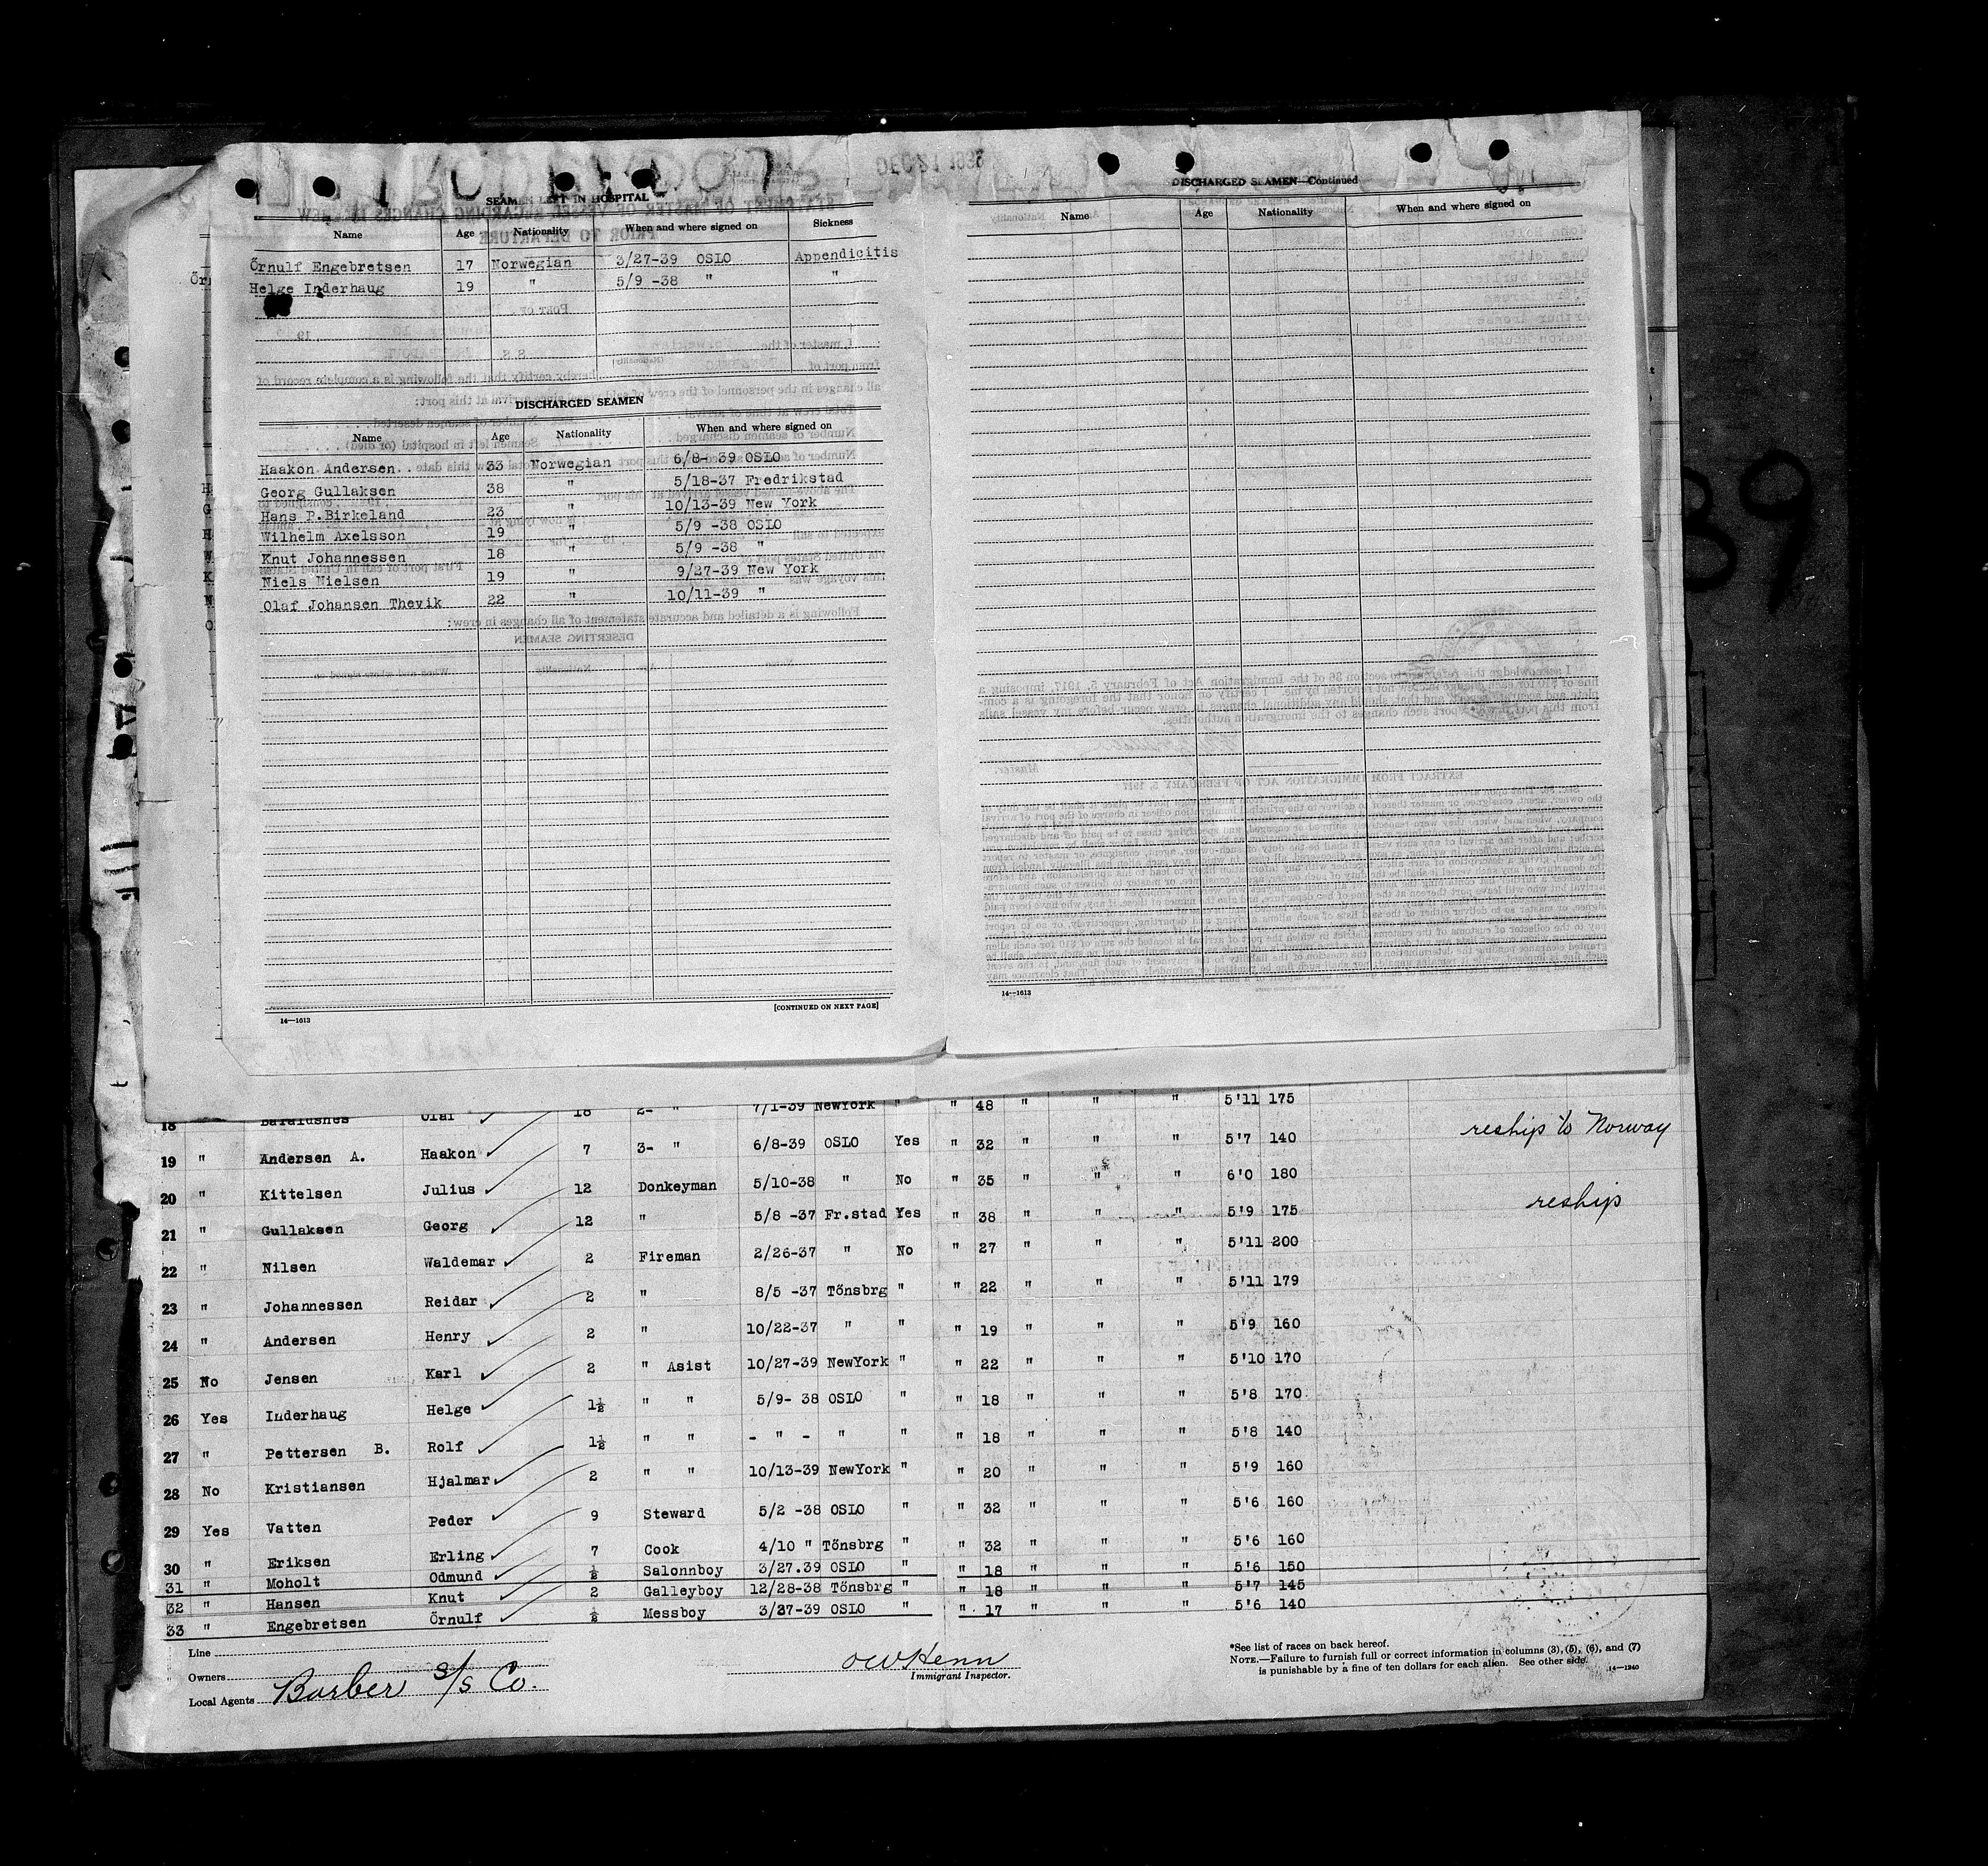 SEAMEN LEFT IN HOSPITAL
Name Age Nationality When and where signed on Sickness
Örnulf Engebretsen 17 Norwegian 3/27-39 OSLO Appendicitis
Helge Inderhaug 19 " 5/9 -38 " "
DISCHARGED SEAMEN
Name Age Nationality When and where signed on
Haakon Andersen 33 Norwegian 6/8- 39 OSLO
Georg Gullaksen 38 " 5/18-37 Fredrikstad
Hans P.Birkeland 23 " 10/13-39 New York
Wilhelm Axelsson 19 " 5/9 -38 OSLO
Knut Johannessen 18 " 5/9 -38 "
Niels Nielsen 19 " 9/27-39 New York
Olaf Johansen Thevik 22 " 10/11-39 "
14—1613 [CONTINUED ON NEXT PAGE]
DISCHARGED SEAMEN—Continued
Name Age Nationality When and where signed on
14—1613
39
18 Olaf 18 2- " 7/1-39 NewYork " " 48 " " " 5'11 175
19 " Andersen A. Haakon 7 3- " 6/8-39 OSLO Yes " 32 " " " 5'7 140 reship to Norway
20 " Kittelsen Julius 12 Donkeyman 5/10-38 " No " 35 " " " 6'0 180
21 " Gullaksen Georg 12 " 5/8 -37 Fr.stad Yes " 38 " " " 5'9 175 reship
22 " Nilsen Waldemar 2 Fireman 2/26-37 " No " 27 " " " 5'11 200
23 " Johannessen Reidar 2 " 8/5 -37 Tönsbrg " " 22 " " " 5'11 179
24 " Andersen Henry 2 " 10/22-37 " " " 19 " " " 5'9 160
25 No Jensen Karl 2 " Asist 10/27-39 NewYork " " 22 " " " 5'10 170
26 Yes Inderhaug Helge 1½ " " 5/9- 38 OSLO " " 18 " " " 5'8 170
27 " Pettersen B. Rolf 1½ " " - " - " " " 18 " " " 5'8 140
28 No Kristiansen Hjalmar 2 " " 10/13-39 NewYork " " 20 " " " 5'9 160
29 Yes Vatten Peder 9 Steward 5/2 -38 OSLO " " 32 " " " 5'6 160
30 " Eriksen Erling 7 Cook 4/10 " Tönsbrg " " 32 " " " 5'6 160
31 " Moholt Odmund ½ Salonnboy 3/27.39 OSLO " " 18 " " " 5'6 150
32 " Hansen Knut 2 Galleyboy 12/28-38 Tönsbrg " " 18 " " " 5'7 145
33 " Engebretsen Örnulf ½ Messboy 3/27-39 OSLO " " 17 " " " 5'6 140
Line
Owners
Local Agents Barber S/S Co.
OWHenn
Immigrant Inspector.
*See list of races on back hereof.
NOTE.—Failure to furnish full or correct information in columns (3), (5), (6), and (7)
is punishable by a fine of ten dollars for each alien. See other side.
14—1240